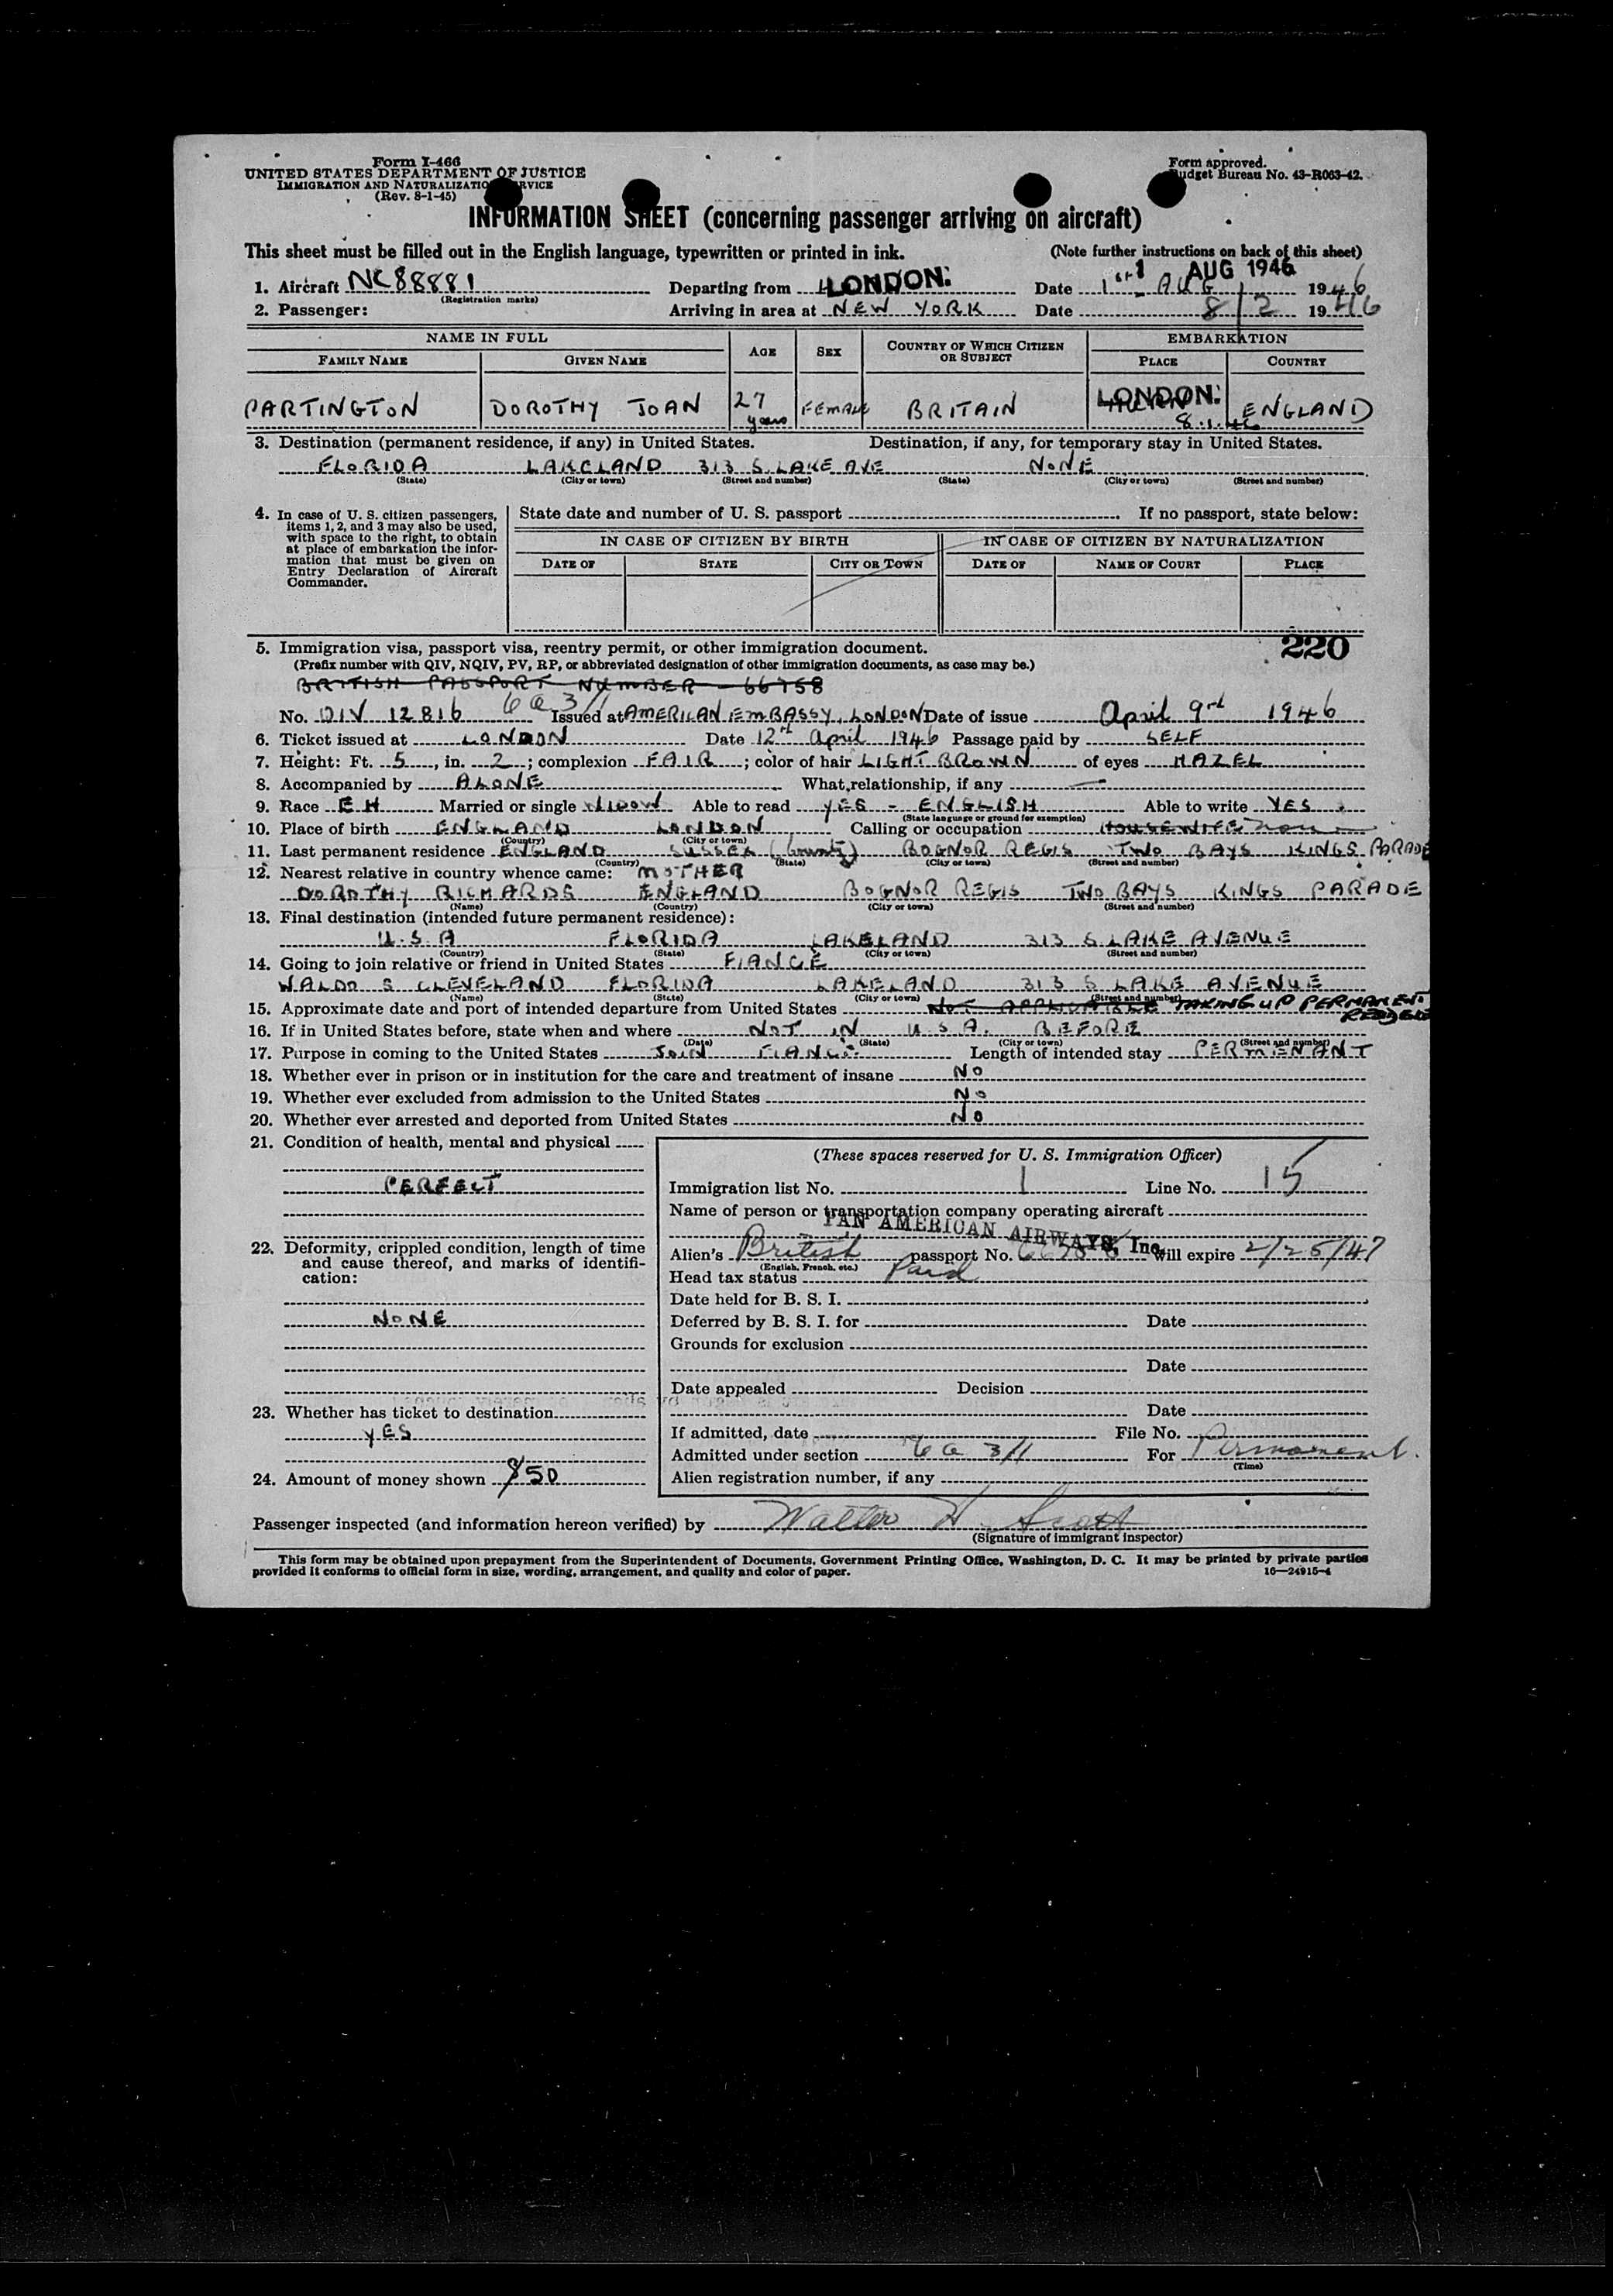 Form I-466
UNITED STATES DEPARTMENT OF JUSTICE
IMMIGRATION AND NATURALIZATION SERVICE
(Rev. 8-1-45)
Form approved.
Budget Bureau No. 43-R063-42.
INFORMATION SHEET (concerning passenger arriving on aircraft)
This sheet must be filled out in the English language, typewritten or printed in ink. (Note further instructions on back of this sheet)
1 AUG 1946
1. Aircraft NC88881 Departing from LONDON. Date 1st AUG 1946
(Registration marks)
2. Passenger: Arriving in area at NEW YORK Date 8/2 1946
NAME IN FULL AGE SEX COUNTRY OF WHICH CITIZEN OR SUBJECT EMBARKATION
FAMILY NAME GIVEN NAME PLACE COUNTRY
PARTINGTON DOROTHY JOAN 27 years FEMALE BRITAIN LONDON. 8.1.46 ENGLAND
3. Destination (permanent residence, if any) in United States. Destination, if any, for temporary stay in United States.
FLORIDA LAKELAND 313 S. LAKE AVE NONE
(State) (City or town) (Street and number) (State) (City or town) (Street and number)
4. In case of U. S. citizen passengers, items 1, 2, and 3 may also be used, with space to the right, to obtain at place of embarkation the information that must be given on Entry Declaration of Aircraft Commander.
State date and number of U. S. passport If no passport, state below:
IN CASE OF CITIZEN BY BIRTH IN CASE OF CITIZEN BY NATURALIZATION
DATE OF STATE CITY OR TOWN DATE OF NAME OF COURT PLACE
220
5. Immigration visa, passport visa, reentry permit, or other immigration document.
(Prefix number with QIV, NQIV, PV, RP, or abbreviated designation of other immigration documents, as case may be.)
BRITISH PASSPORT NUMBER - 66758
No. DIV 12816 6a 3/1 Issued at AMERICAN EMBASSY, LONDON Date of issue April 9rd 1946
6. Ticket issued at LONDON Date 12th April 1946 Passage paid by SELF
7. Height: Ft. 5, in. 2; complexion FAIR; color of hair LIGHT BROWN of eyes HAZEL
8. Accompanied by ALONE What relationship, if any —
9. Race EH Married or single WIDOW Able to read YES - ENGLISH Able to write YES
(State language or ground for exemption)
10. Place of birth ENGLAND LONDON Calling or occupation HOUSEWIFE none
(Country) (City or town)
11. Last permanent residence ENGLAND SUSSEX (County) BOGNOR REGIS TWO BAYS KINGS PARADE
(Country) (State) (City or town) (Street and number)
12. Nearest relative in country whence came: MOTHER
DOROTHY RICHARDS ENGLAND BOGNOR REGIS TWO BAYS KINGS PARADE
(Name) (Country) (City or town) (Street and number)
13. Final destination (intended future permanent residence):
U.S.A FLORIDA LAKELAND 313 S. LAKE AVENUE
(Country) (State) (City or town) (Street and number)
14. Going to join relative or friend in United States FIANCÉ
WALDO S CLEVELAND FLORIDA LAKELAND 313 S LAKE AVENUE
(Name) (State) (City or town) (Street and number)
15. Approximate date and port of intended departure from United States NOT APPLICABLE TAKING UP PERMANENT
16. If in United States before, state when and where NOT IN U.S.A. BEFORE
(Date) (State) (City or town) (Street and number)
17. Purpose in coming to the United States JOIN FIANCE Length of intended stay PERMENANT
18. Whether ever in prison or in institution for the care and treatment of insane NO
19. Whether ever excluded from admission to the United States NO
20. Whether ever arrested and deported from United States NO
21. Condition of health, mental and physical
PERFECT
22. Deformity, crippled condition, length of time and cause thereof, and marks of identification:
NONE
23. Whether has ticket to destination
YES
24. Amount of money shown $50
(These spaces reserved for U. S. Immigration Officer)
Immigration list No. 1 Line No. 15
Name of person or transportation company operating aircraft
PAN AMERICAN AIRWAYS, Inc.
Alien's British passport No. 66758 Will expire 2/25/47
(English, French, etc.)
Head tax status Paid
Date held for B. S. I.
Deferred by B. S. I. for Date
Grounds for exclusion
Date
Date appealed Decision
Date
If admitted, date File No.
Admitted under section 6a 3/1 For Permanent.
(Time)
Alien registration number, if any
Passenger inspected (and information hereon verified) by Walter H. Scott
(Signature of immigrant inspector)
This form may be obtained upon prepayment from the Superintendent of Documents, Government Printing Office, Washington, D. C. It may be printed by private parties
provided it conforms to official form in size, wording, arrangement, and quality and color of paper. 16—24915-4